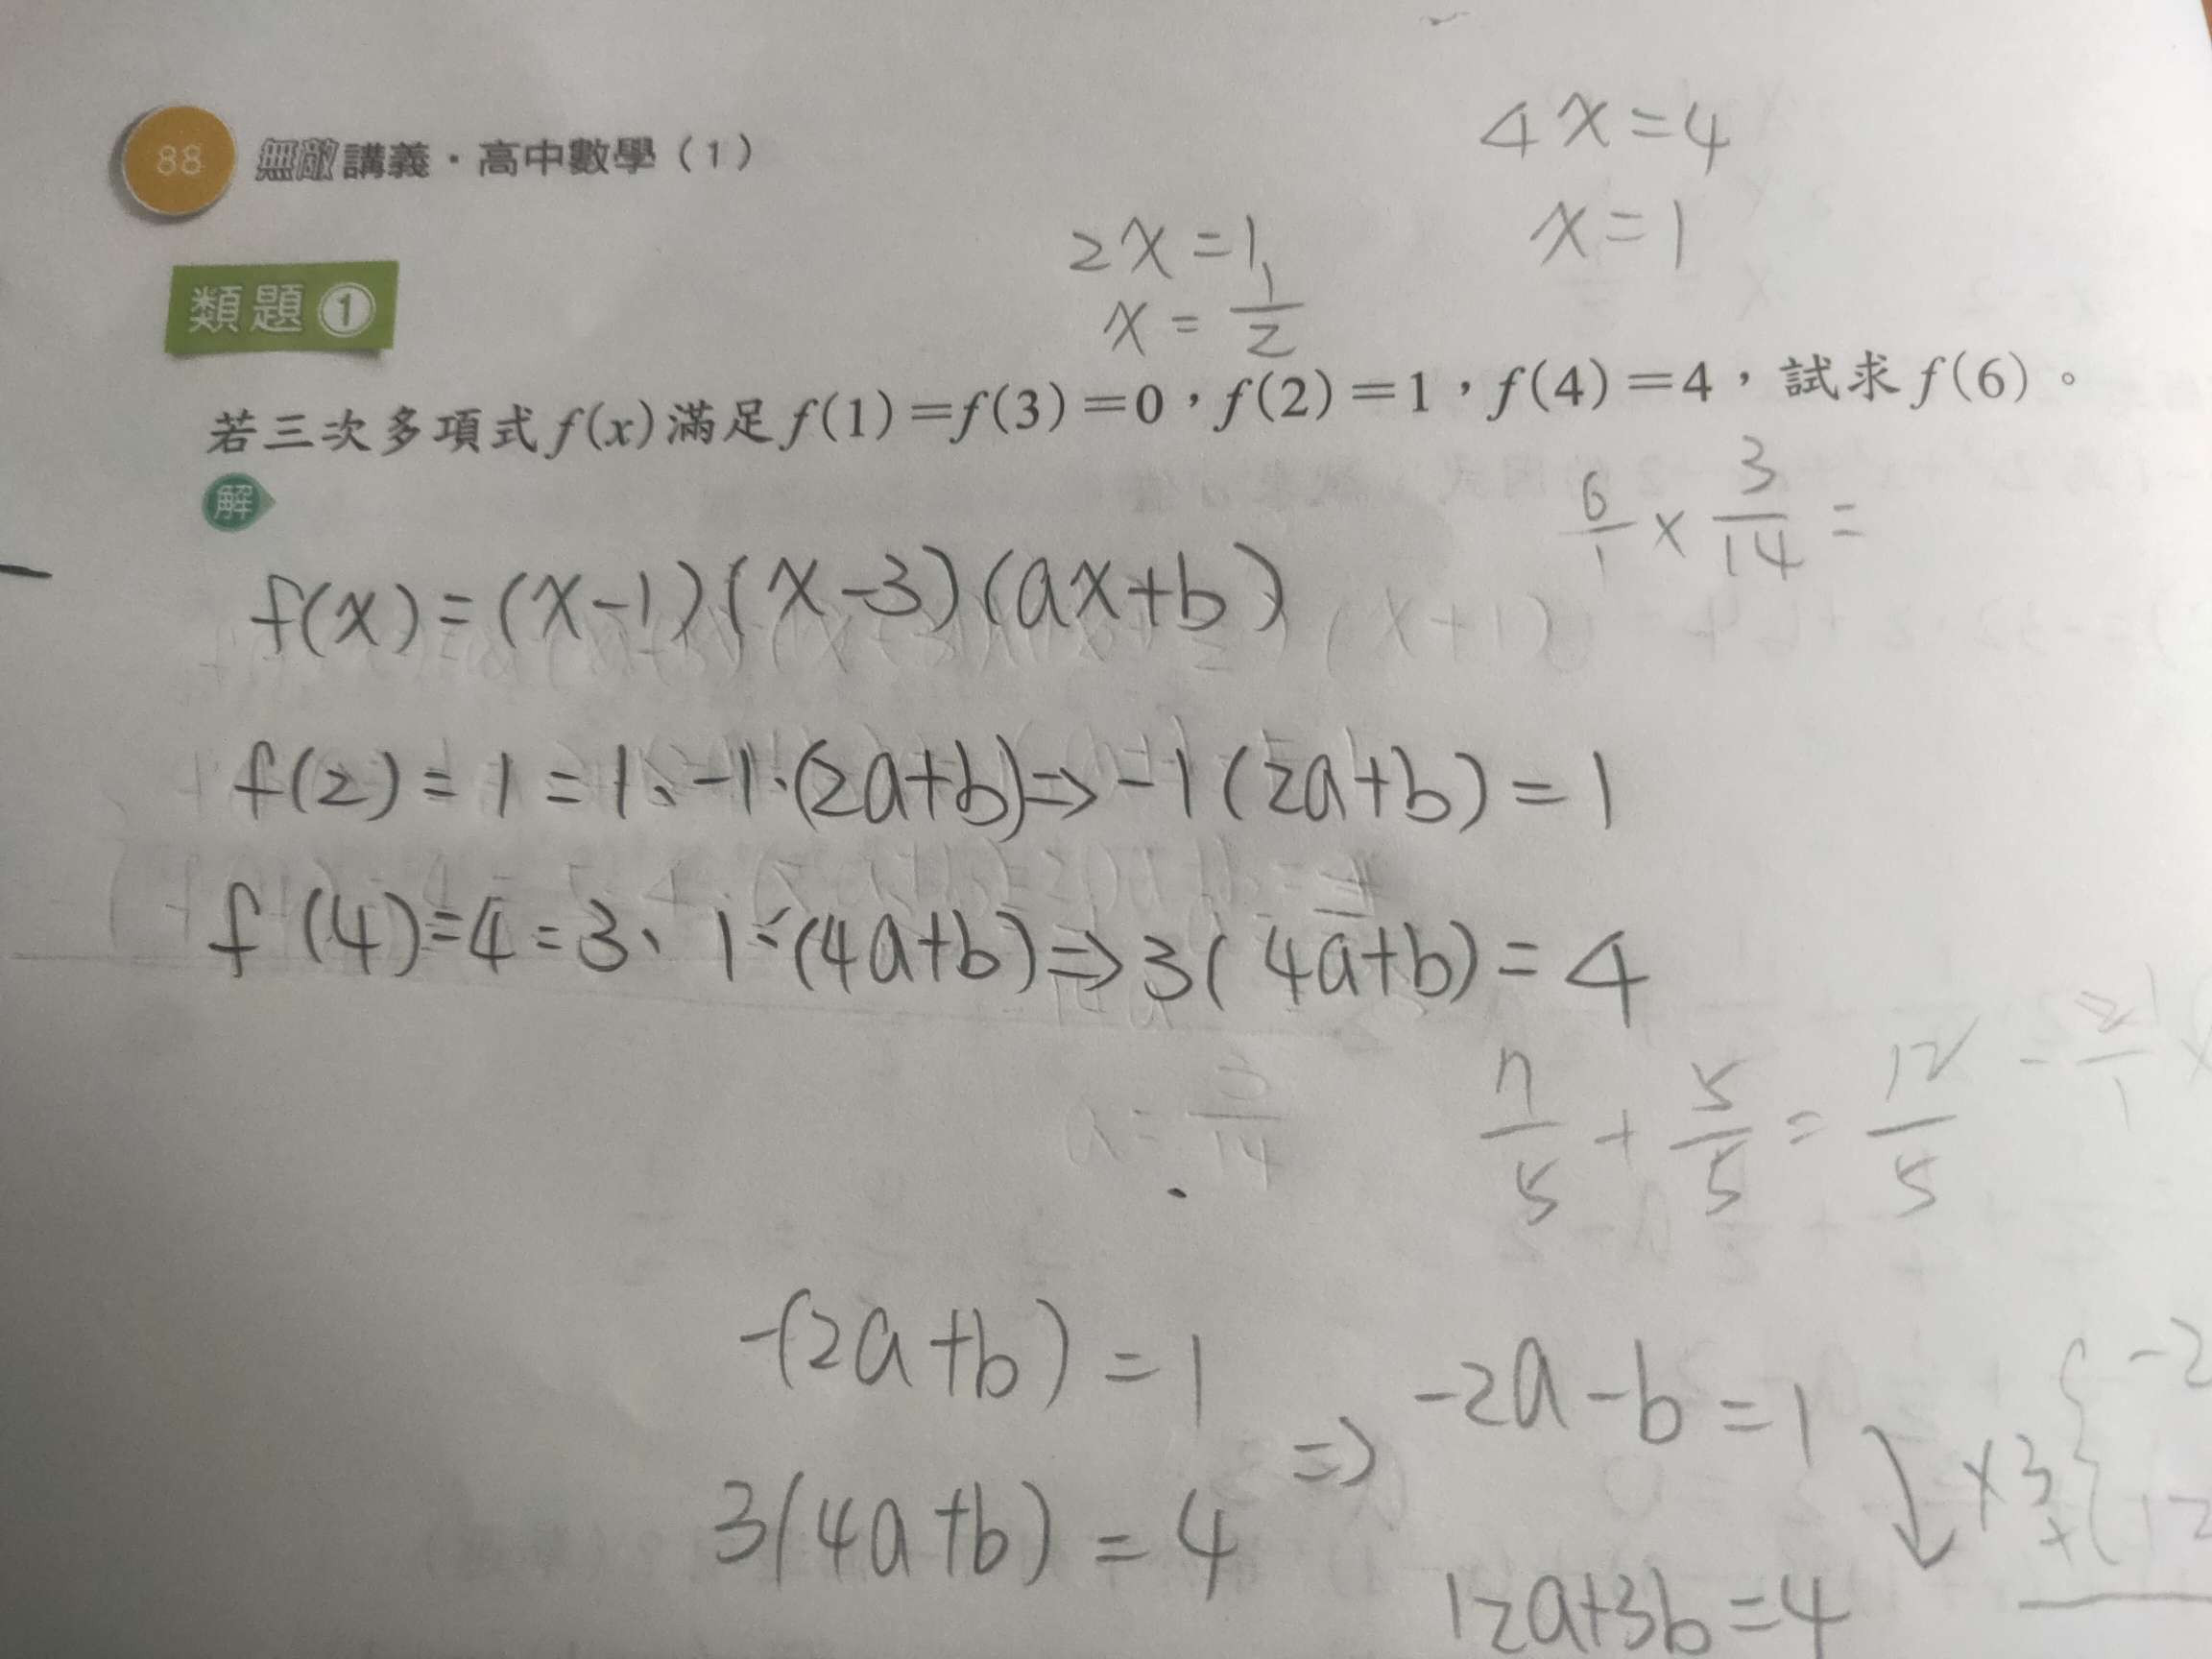 88 無敵講義・高中數學（1）
4x=4
x=1
2x=1
x=1/2
類題①
若三次多項式f(x)滿足f(1)=f(3)=0，f(2)=1，f(4)=4，試求f(6)。
解
6/1 × 3/14 =
f(x)=(x-1)(x-3)(ax+b)
f(2)=1=1·-1·(2a+b)⇒-1(2a+b)=1
f(4)=4=3·1·(4a+b)⇒3(4a+b)=4
a=3/14
7/5+5/5=12/5
-(2a+b)=1
3(4a+b)=4
⇒
-2a-b=1
12a+3b=4
×3